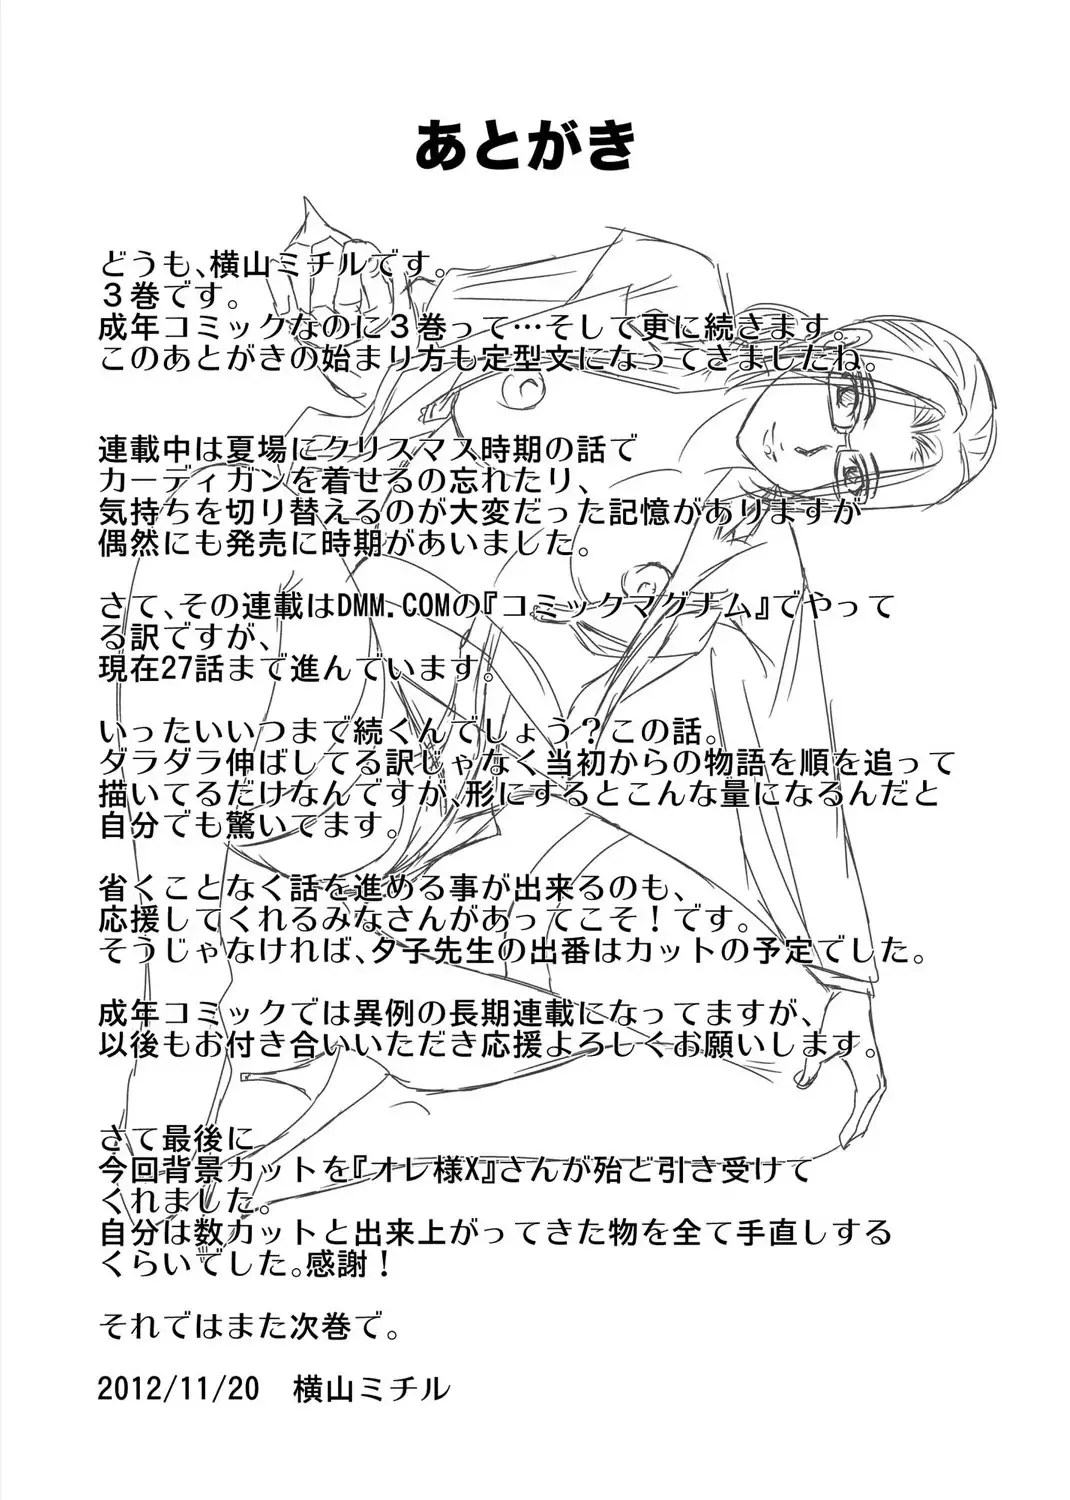 あとがき
どうも、横山ミチルです。
３巻です。
成年コミックなのに３巻って…そして更に続きます。
このあとがきの始まり方も定型文になってきましたね。
連載中は夏場にクリスマス時期の話で
カーディガンを着せるの忘れたり、
気持ちを切り替えるのが大変だった記憶がありますが
偶然にも発売に時期があいました。
さて、その連載はDMM.COMの『コミックマグナム』でやって
る訳ですが、
現在27話まで進んでいます。
いったいいつまで続くんでしょう？この話。
ダラダラ伸ばしてる訳じゃなく当初からの物語を順を追って
描いてるだけなんですが、形にするとこんな量になるんだと
自分でも驚いてます。
省くことなく話を進める事が出来るのも、
応援してくれるみなさんがあってこそ！です。
そうじゃなければ、夕子先生の出番はカットの予定でした。
成年コミックでは異例の長期連載になってますが、
以後もお付き合いいただき応援よろしくお願いします。
さて最後に
今回背景カットを『オレ様X』さんが殆ど引き受けて
くれました。
自分は数カットと出来上がってきた物を全て手直しする
くらいでした。感謝！
それではまた次巻で。
2012/11/20　横山ミチル